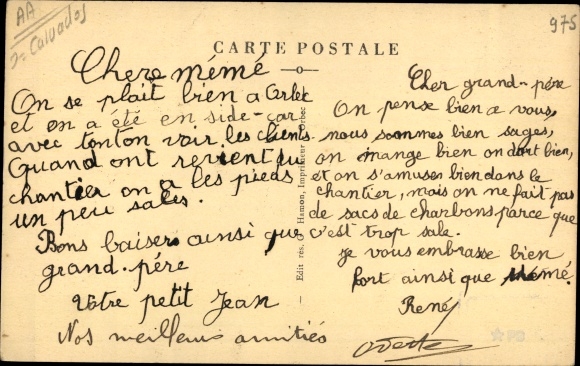 AA
Calvados
975
CARTE POSTALE
Chere mémé
On se plait bien a Orbec
et on a été en side-car
avec tonton voir les clients.
Quand ont revient du
chantier on a les pieds
un peu sales.
Bons baisers ainsi que
grand-père
Votre petit Jean
Nos meilleurs amitiés
Edit rés. G. Hamon, Imprimeur Orbec
Cher grand-père
On pense bien a vous,
nous sommes bien sages,
on mange bien on dort bien,
et on s'amuses bien dans le
chantier, mais on ne fait pas
de sacs de charbons parce que
c'est trop sale.
je vous embrasse bien
fort ainsi que mémé.
René